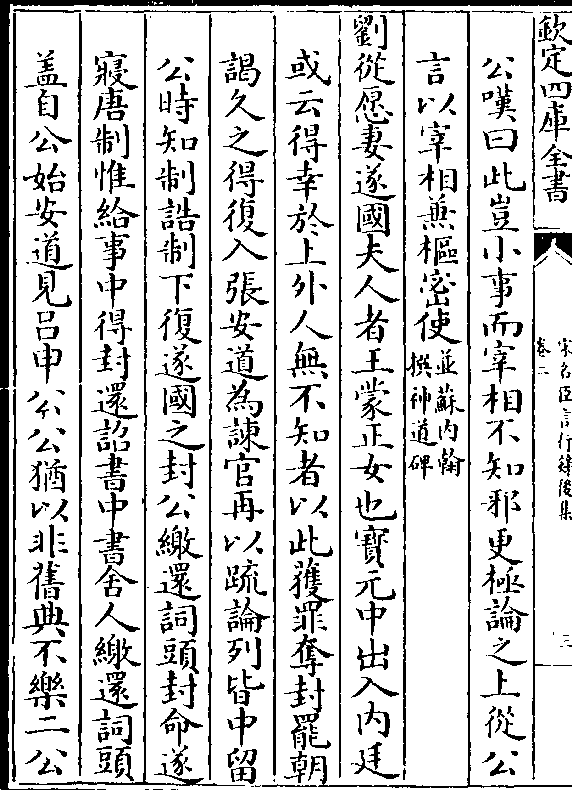 欽定四庫全書
宋名臣言行錄後集
卷二
三
公嘆曰此豈小事而宰相不知邪更極論之上從公
言以宰相兼樞密使並蘇內翰撰神道碑
劉從愿妻遂國夫人者王蒙正女也寶元中出入內廷
或云得幸於上外人無不知者以此獲罪奪封罷朝
謁久之得復入張安道為諫官再以疏論列皆中留
公時知制誥制下復遂國之封公繳還詞頭封命遂
寢唐制惟給事中得封還詔書中書舍人繳還詞頭
葢自公始安道見呂申公公猶以非舊典不樂二公